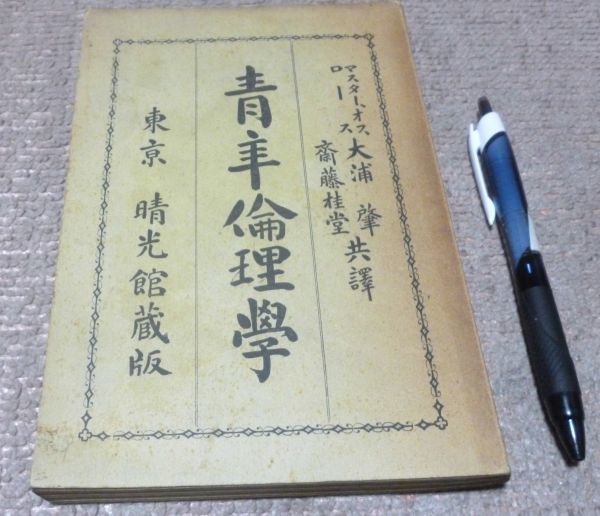 マスター、オフ、
ロース
大浦肇
斎藤桂堂
共譯
青年倫理學
東京 晴光館蔵版